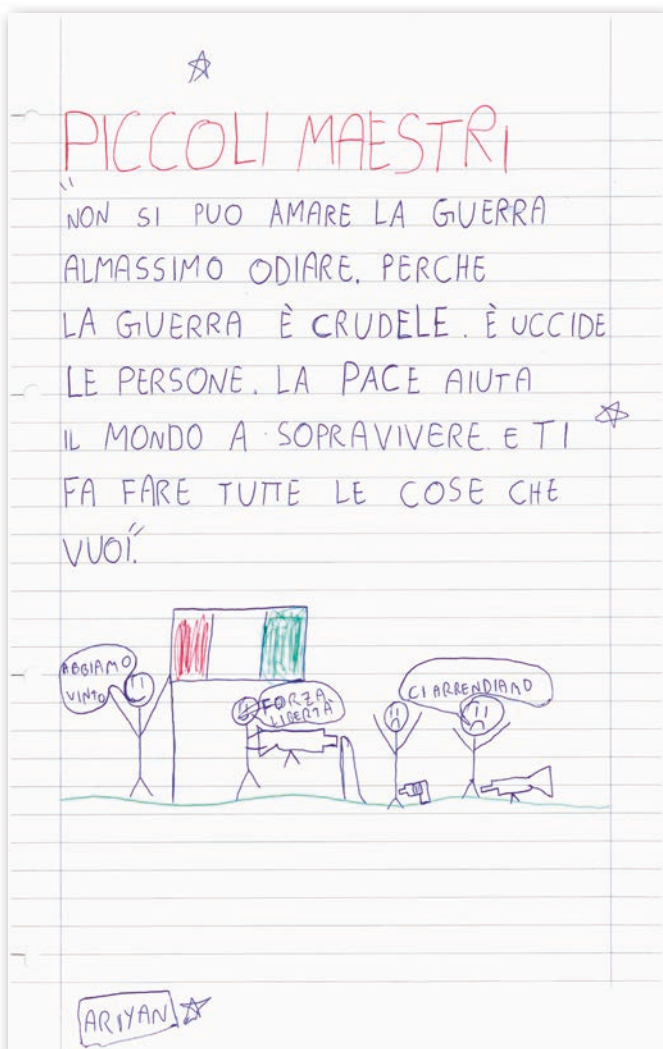 PICCOLI MAESTRI
"NON SI PUO AMARE LA GUERRA
ALMASSIMO ODIARE. PERCHE
LA GUERRA È CRUDELE. È UCCIDE
LE PERSONE. LA PACE AIUTA
IL MONDO A SOPRAVIVERE. E TI
FA FARE TUTTE LE COSE CHE
VUOI."
ABBIAMO
VINTO
FORZA
LIBERTÀ
CI ARRENDIAMO
ARIYAN